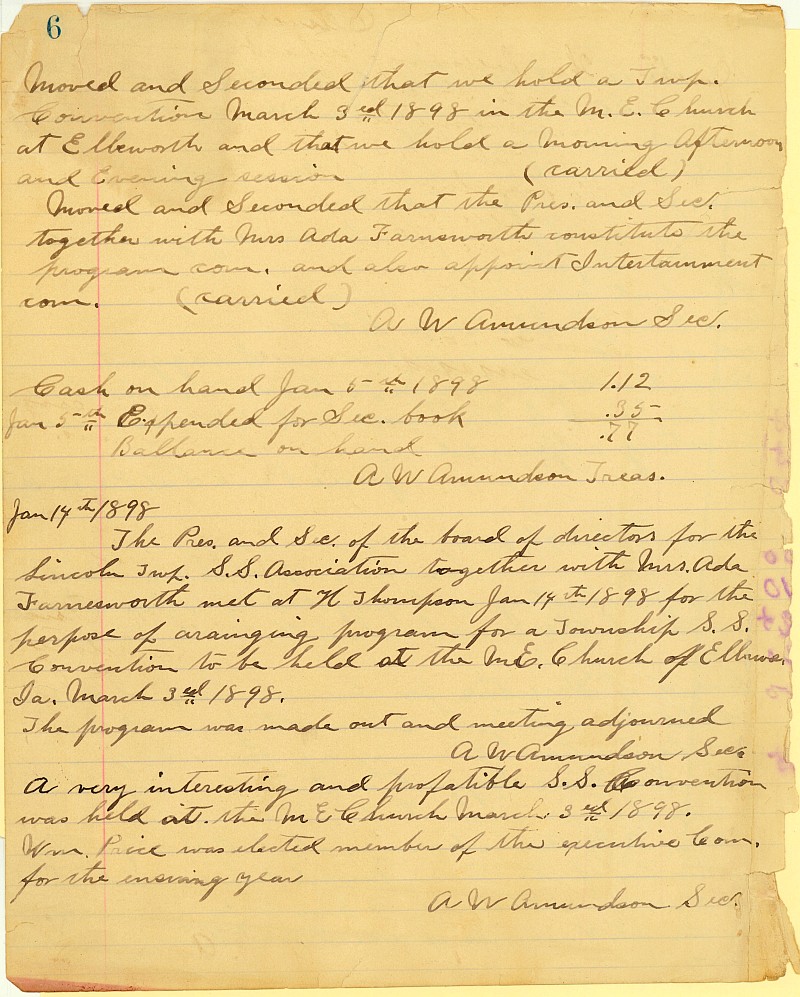 6
Moved and Seconded that we hold a Twp.
Convention March 3rd 1898 in the M. E. Church
at Ellsworth and that we hold a Morning Afternoon
and Evening session (carried)
Moved and Seconded that the Pres. and Sec.
together with Mrs Ada Farnsworth constitute the
program com. and also appoint Intertainment
com. (carried)
A W Amundson Sec.
Cash on hand Jan 5th 1898 1.12
Jan 5th Expended for Sec. book .35
Ballance on hand .77
A W Amundson Treas.
Jan 14th 1898
The Pres. and Sec. of the board of directors for the
Lincoln Twp. S.S. Association together with Mrs. Ada
Farnesworth met at H Thompson Jan 14th 1898 for the
perpose of arainging program for a Township S. S.
Convention to be held at the M.E. Church of
Ia. March 3rd 1898.
The program was made out and meeting adjourned
A W Amundson Sec.
A very interesting and profatible S.S. Convention
was held at the M E Church March 3rd 1898.
Wm. Price was elected member of the executive Com.
for the ensuing year
A W Amundson Sec.